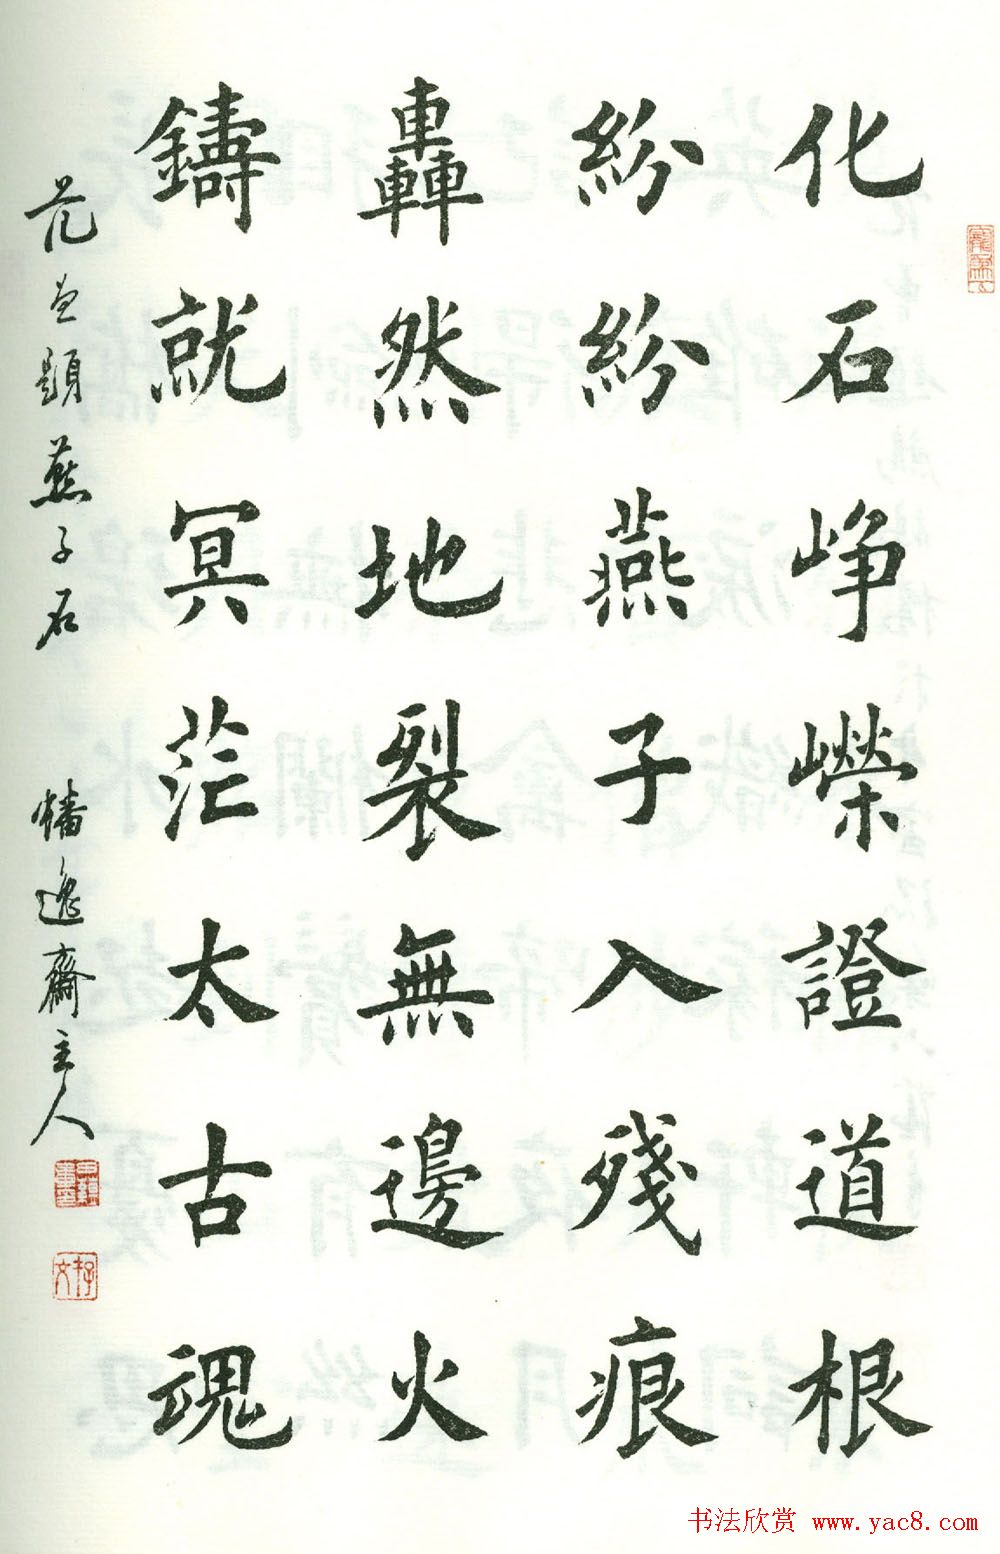 化石崢嶸證道根
紛紛燕子入殘痕
轟然地裂無邊火
鑄就冥茫太古魂
范曾題燕子石 蟠逸齋主人
书法欣赏 www.yac8.com